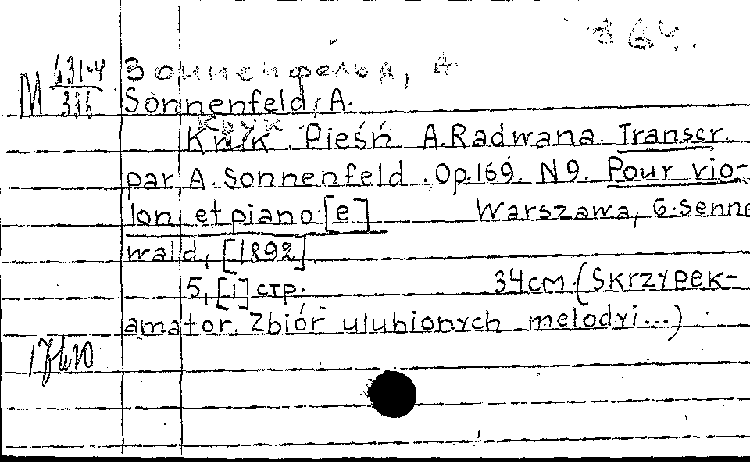 864.
М 631-4/356
Зонненфельд, А.
Sonnenfeld, A.
Krzyk. Pieśń A.Radwana. Transcr.
par A. Sonnenfeld. Op.169. N9. Pour vio-
lon et piano. [e] Warszawa, G.Senne
wald, [1892]
5, [1] стр. 34cm. (Skrzypek-
amator. Zbiór ulubionych melodyi...)